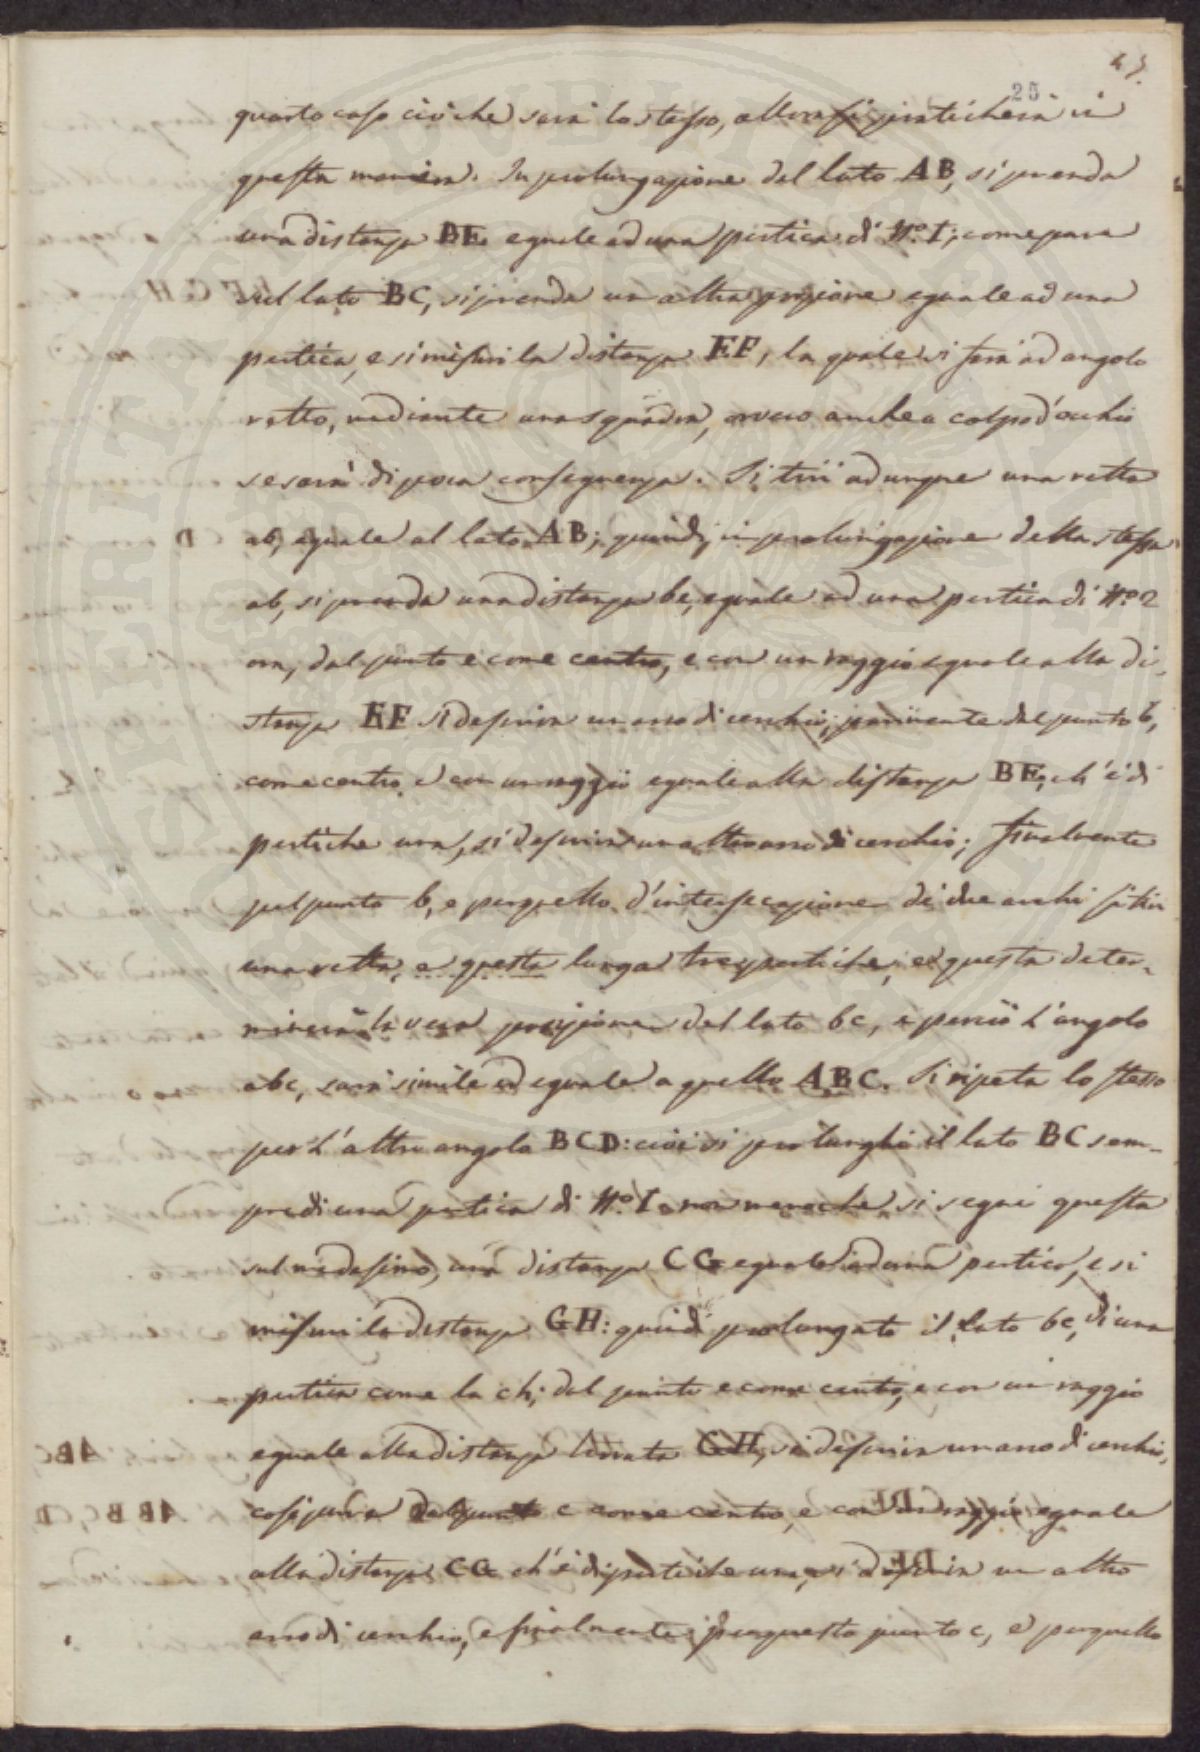 25
quarto caso ciò che sarà lo stesso, allora si praticherà in
questa maniera. In prolungazione del lato AB, si prenda
una distanza BE eguale ad una pertica di N.o I; come pure
sul lato BC, si prenda un altra porzione eguale ad una
pertica, e si misuri la distanza EF, la quale si farà ad angolo
retto, mediante una squadra, ovvero anche a colpo d'occhio
se sarà di poca conseguenza. Si tiri adunque una retta
ab, eguale al lato AB; quindi, in prolungazione della stessa
ab, si prenda una distanza be, eguale ad una pertica di N.o 2
ora, dal punto e come centro, e con un raggio eguale alla di-
stanza EF si descriva un arco di cerchio; parimente dal punto b,
come centro e con un raggio eguale alla distanza BF, ch'è di
pertiche una, si descriva un altro arco di cerchio; finalmente
pel punto b, e per quello d'intersecazione de' due archi si tiri
una retta, e questa lunga tre pertiche, e questa deter-
minerà la vera posizione del lato bc, e perciò l'angolo
abc, sarà simile ed eguale a quello ABC. Si ripeta lo stesso
per l'altro angolo BCD: cioè si prolunghi il lato BC sem-
pre di una pertica di N.o I. non meno che si segni questa
sul medesimo, una distanza CG eguale ad una pertica, e si
misuri la distanza GH: quindi prolungato il lato bc, di una
pertica come la ch; dal punto e come centro, e con un raggio
eguale alla distanza trovata GH, si descriva un arco di cerchio,
così pura dal punto c come centro, e con un raggio eguale
alla distanza CG ch'è di pertiche una, si descriva un altro
arco di cerchio, e finalmente per questo punto c, e per quello